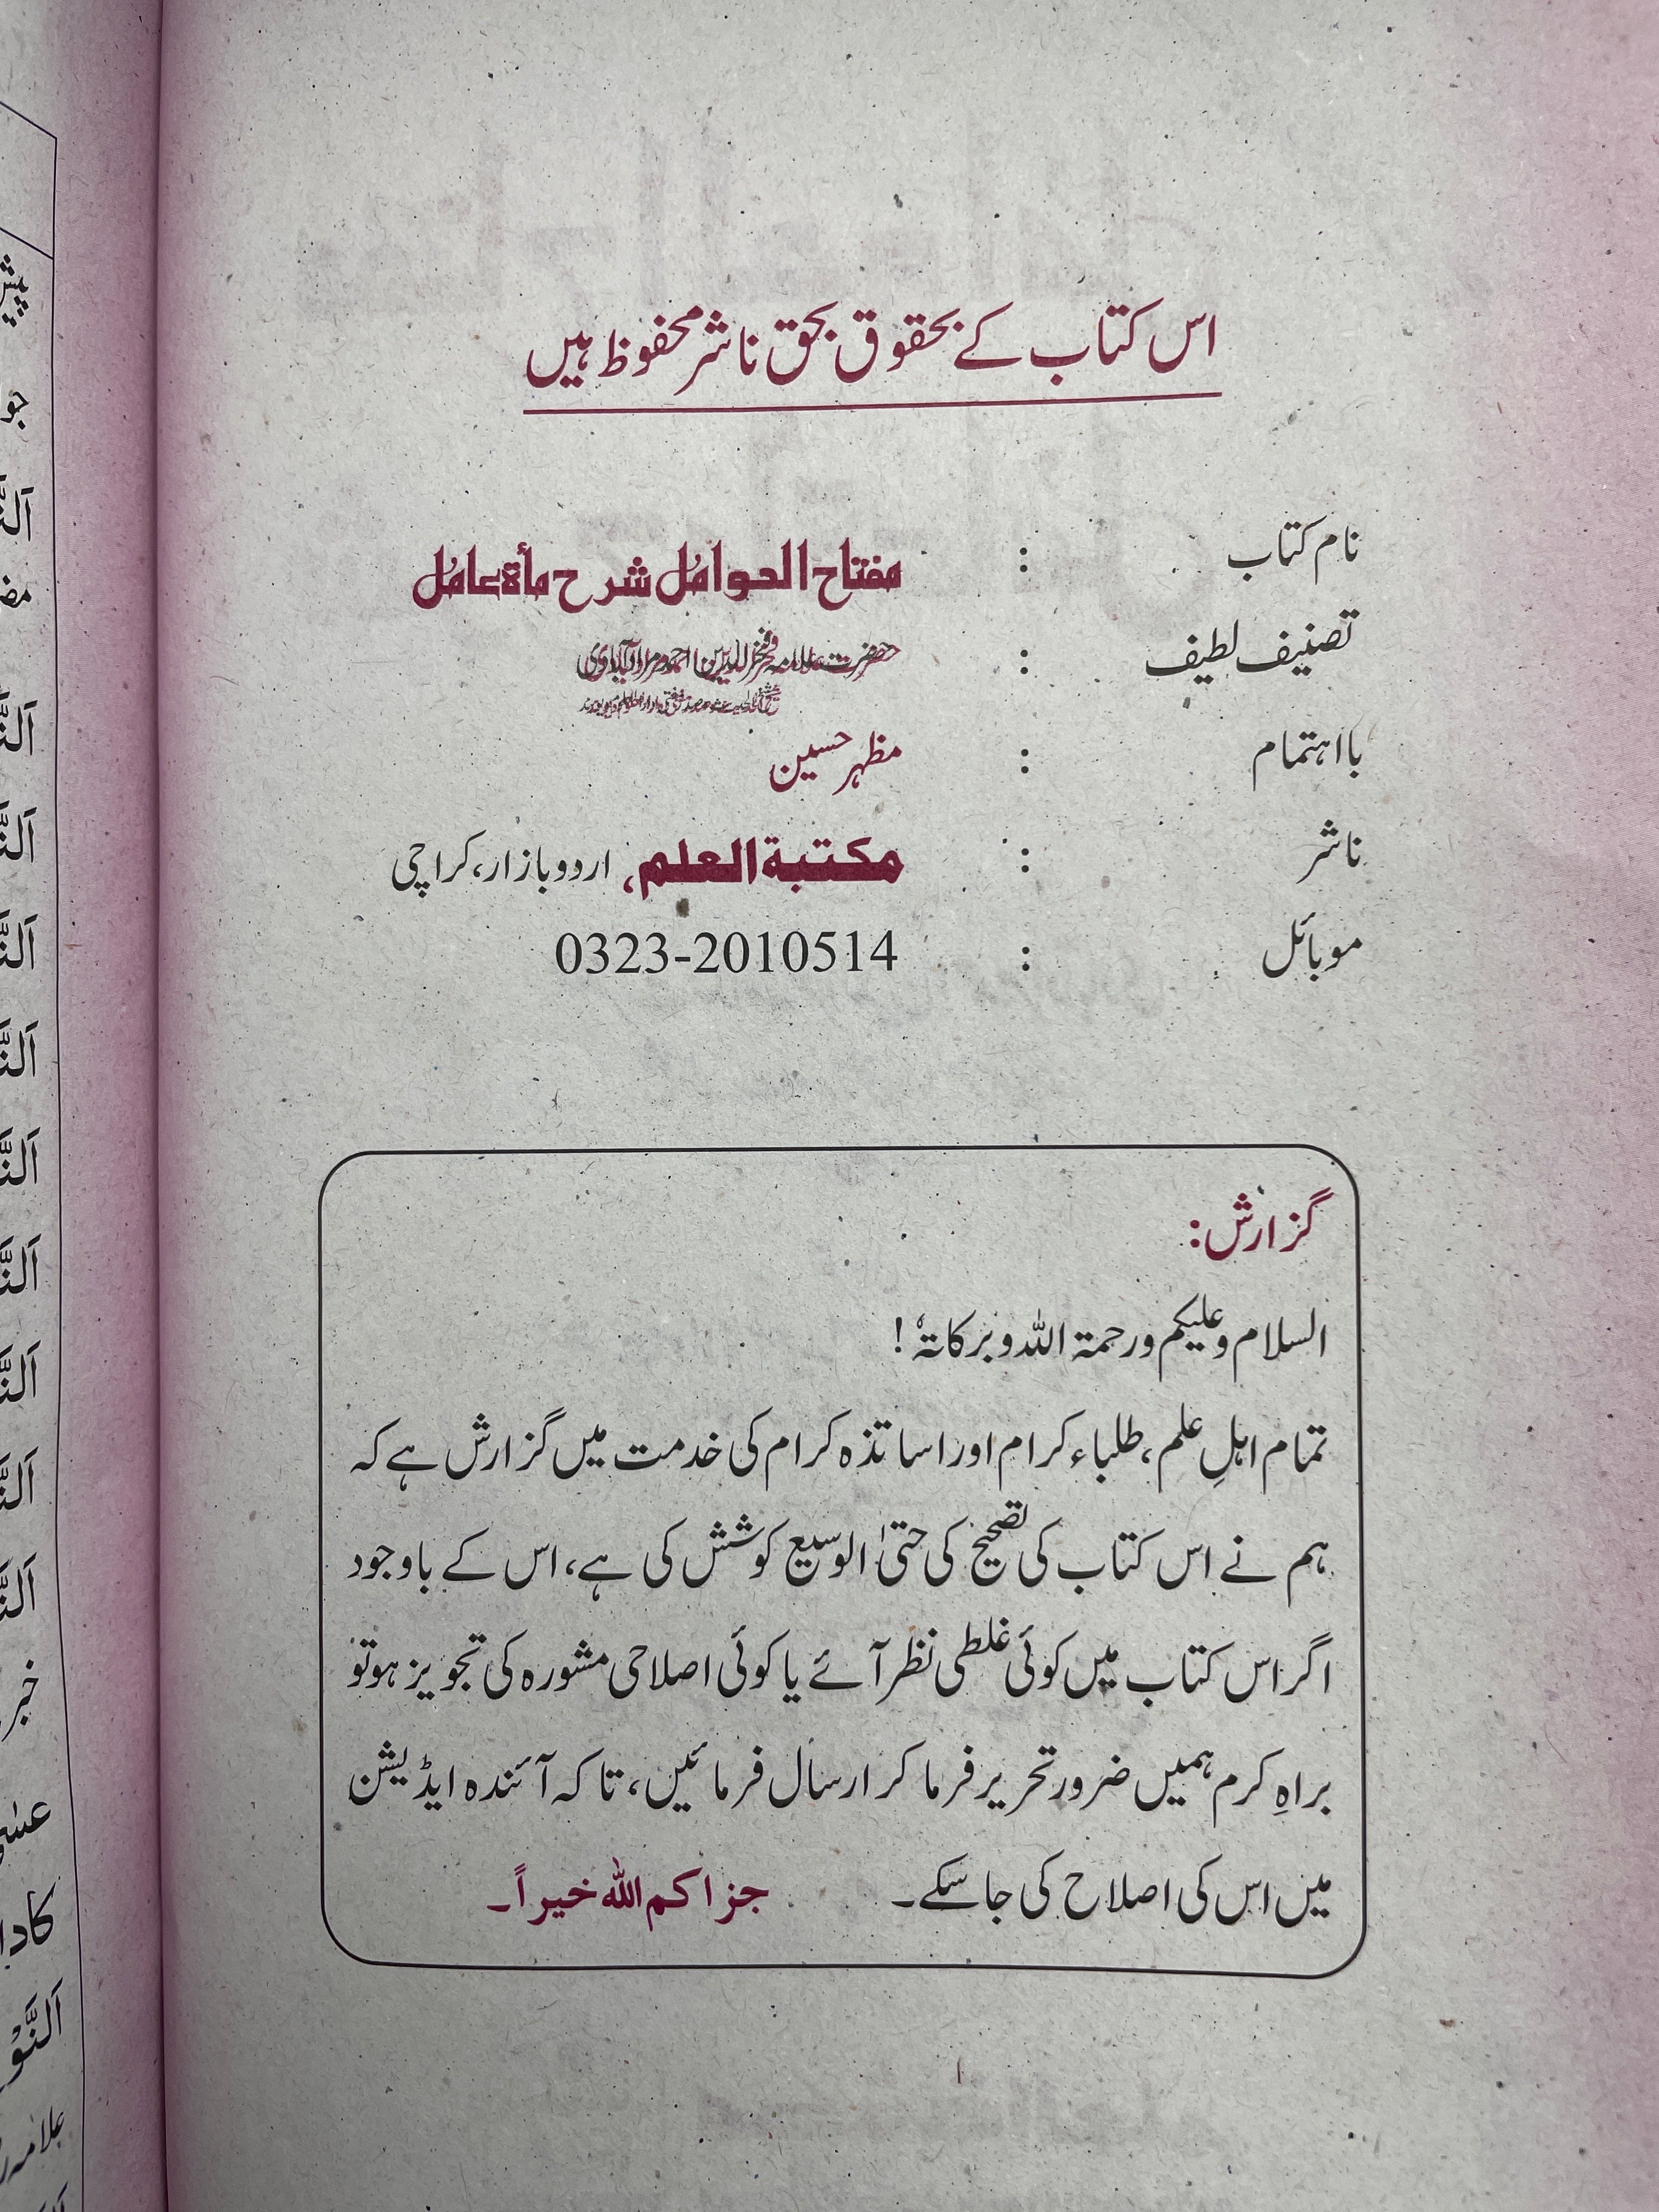 اس کتاب کے بحقوق بحق ناشر محفوظ ہیں
نام کتاب : مفتاح العوامل شرح مأة عامل
تصنیف لطیف : حضرت علامہ فخر الدین احمد مرادآبادی
شیخ الحدیث
بااہتمام : مظہر حسین
ناشر : مکتبة العلم، اردو بازار، کراچی
موبائل : 0323-2010514
گزارش:
السلام وعلیکم ورحمۃ اللہ وبرکاتہٗ!
تمام اہلِ علم، طلباء کرام اور اساتذہ کرام کی خدمت میں گزارش ہے کہ
ہم نے اس کتاب کی تصحیح کی حتیٰ الوسیع کوشش کی ہے، اس کے باوجود
اگر اس کتاب میں کوئی غلطی نظر آئے یا کوئی اصلاحی مشورہ کی تجویز ہو تو
براہِ کرم ہمیں ضرور تحریر فرما کر ارسال فرمائیں، تاکہ آئندہ ایڈیشن
میں اس کی اصلاح کی جاسکے۔ جزاکم اللہ خیراً۔